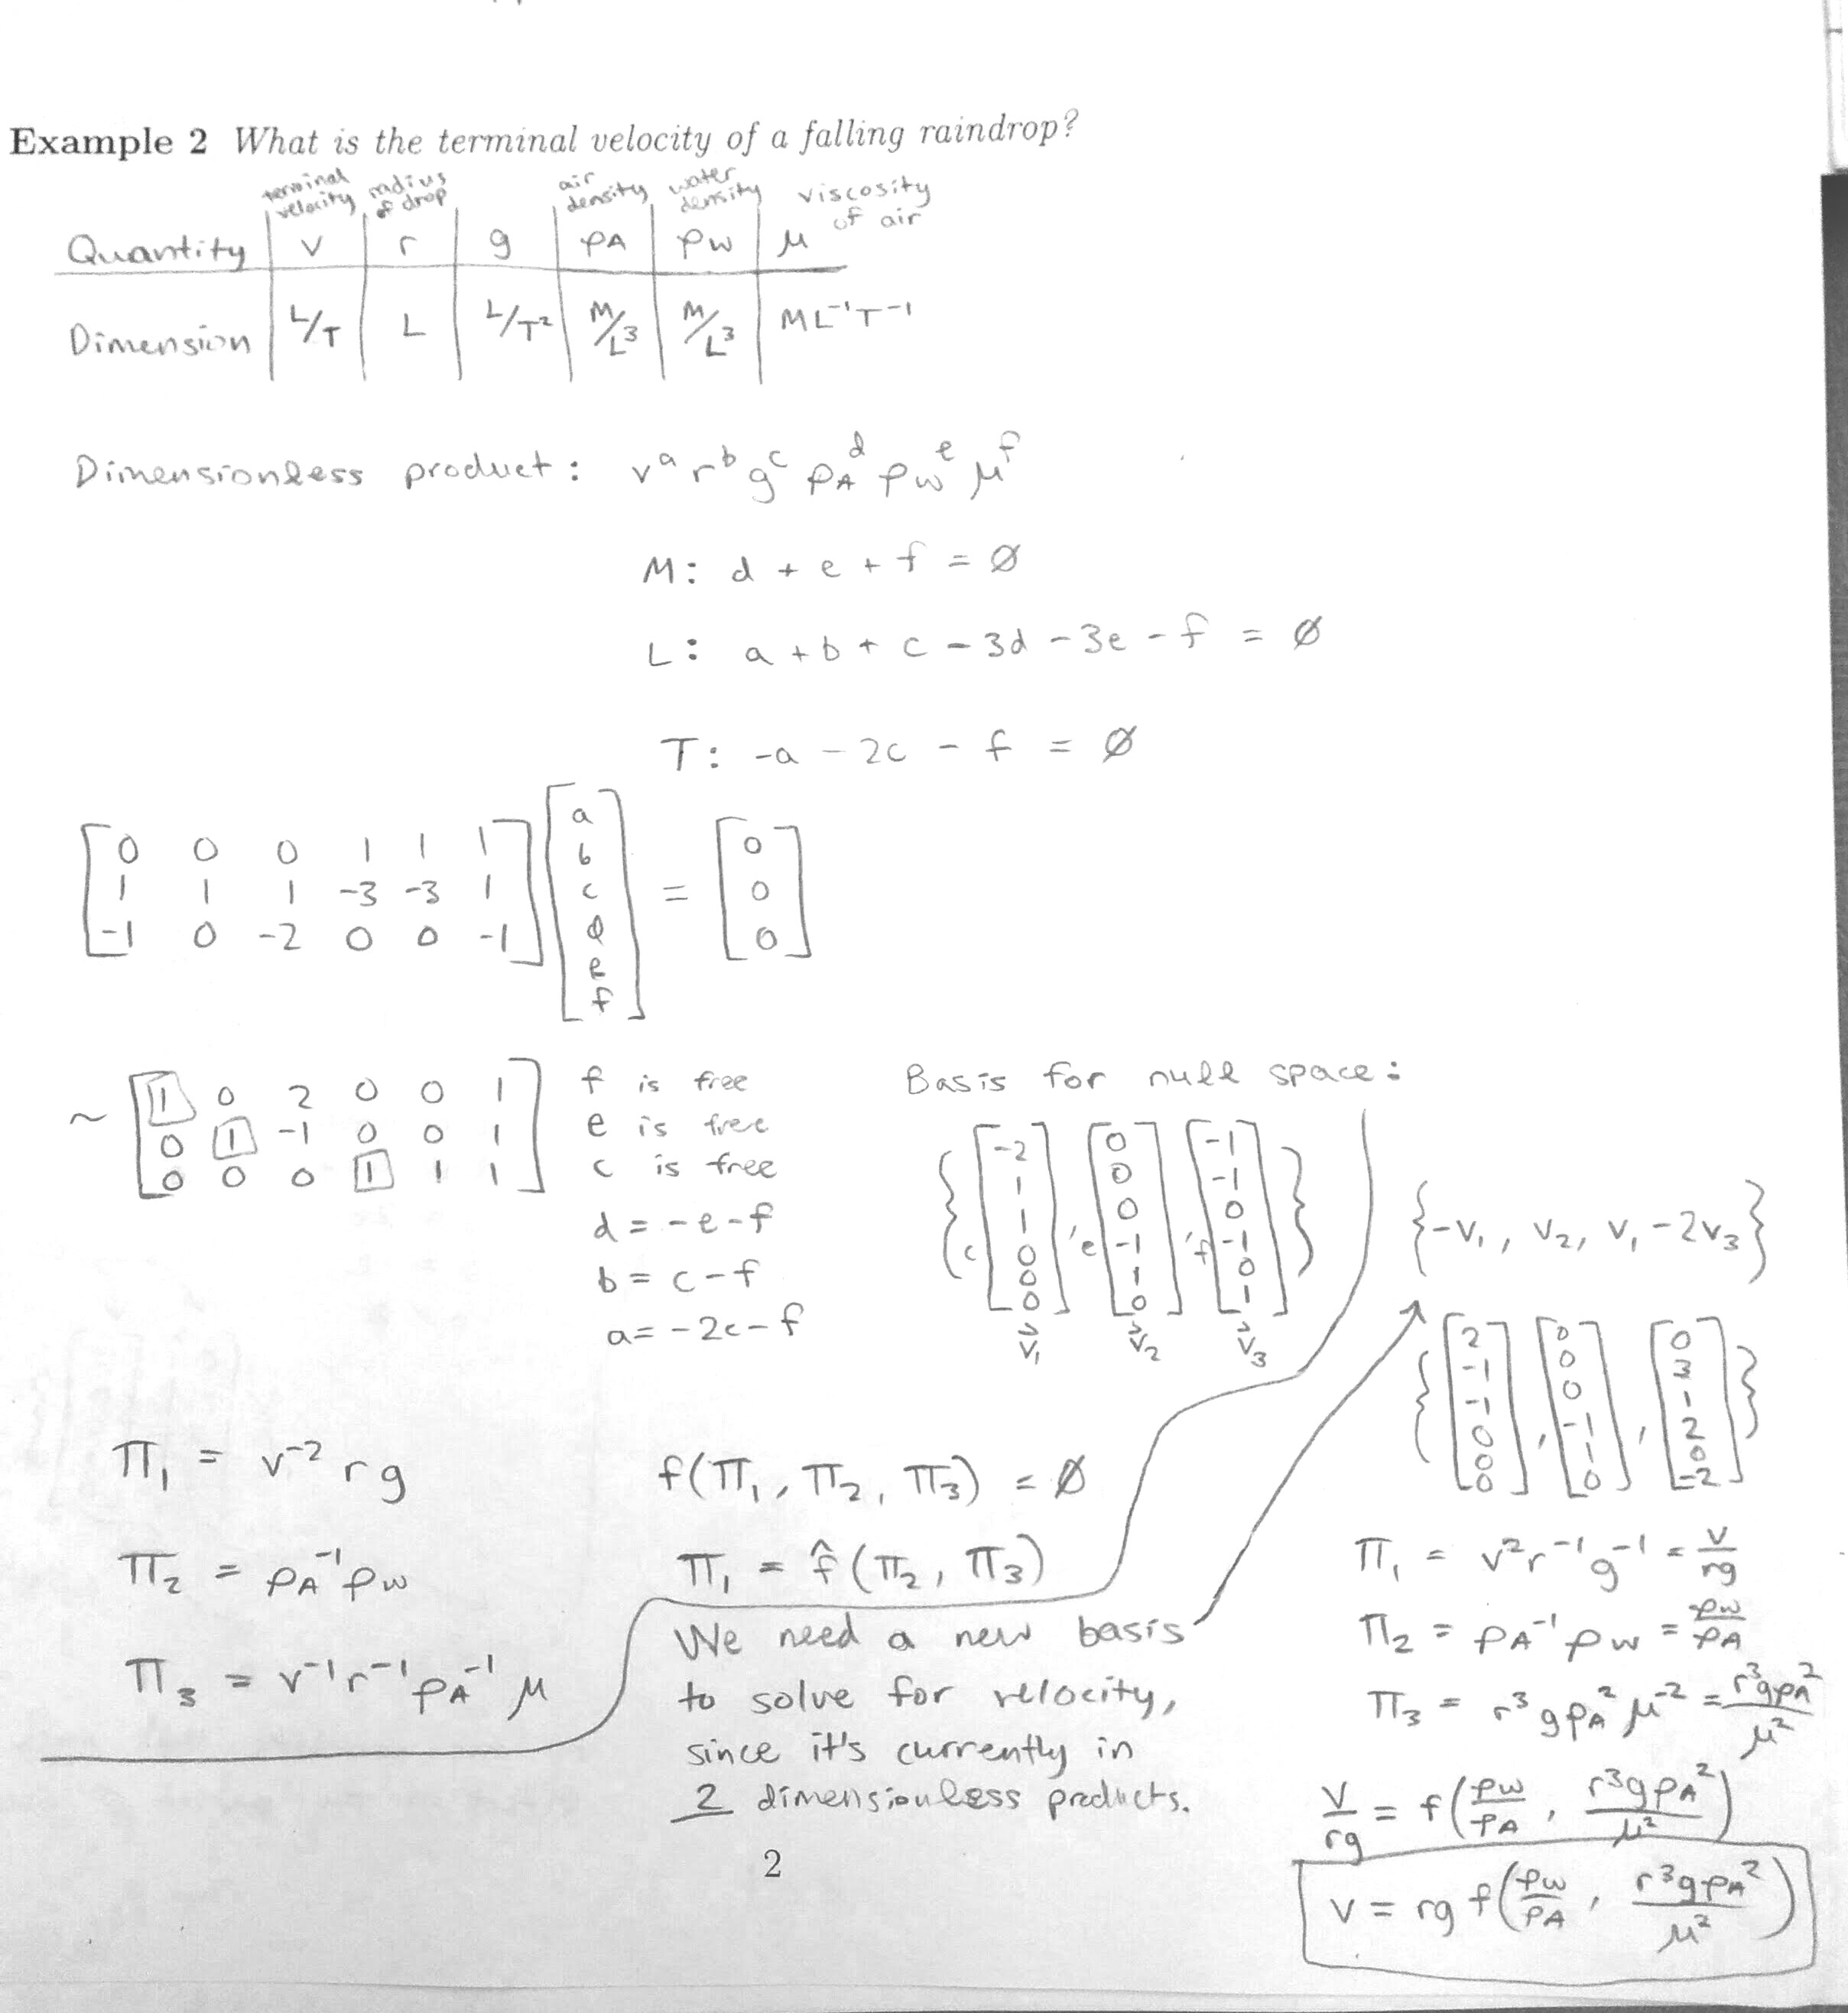 Example 2 What is the terminal velocity of a falling raindrop?
terminal velocity radius of drop air density water density viscosity of air
Quantity v r g ρA ρW μ
Dimension L/T L L/T² M/L³ M/L³ ML⁻¹T⁻¹
Dimensionless product: vᵃ rᵇ gᶜ ρAᵈ ρWᵉ μᶠ
M: d + e + f = ∅
L: a + b + c - 3d - 3e - f = ∅
T: -a - 2c - f = ∅
[0 0 0 1 1 1] [a] [0]
[1 1 1 -3 -3 1] [b c d e] = [0]
[-1 0 -2 0 0 -1] [f] [0]
~ [1 0 2 0 0 1]
[0 1 -1 0 0 1]
[0 0 0 1 1 1]
f is free
e is free
c is free
d = -e-f
b = c-f
a = -2c-f
Basis for null space:
{c[-2 1 1 0 0 0], e[0 0 0 -1 1 0], f[-1 -1 0 -1 0 1]}
v⃗₁ v⃗₂ v⃗₃
{-v₁, v₂, v₁-2v₃}
{[2 -1 -1 0 0 0], [0 0 0 -1 1 0], [0 3 1 2 0 -2]}
π₁ = v⁻² rg
π₂ = ρA⁻¹ρW
π₃ = v⁻¹r⁻¹ρA⁻¹μ
f(π₁, π₂, π₃) = ∅
π₁ = f̂(π₂, π₃)
We need a new basis
to solve for velocity,
since it's currently in
2 dimensionless products.
π₁ = v²r⁻¹g⁻¹ = v/rg
π₂ = ρA⁻¹ρW = ρW/ρA
π₃ = r³gρA²μ⁻² = r³gρA²/μ²
v/rg = f(ρW/ρA, r³gρA²/μ²)
v = rg f(ρW/ρA, r³gρA²/μ²)
2